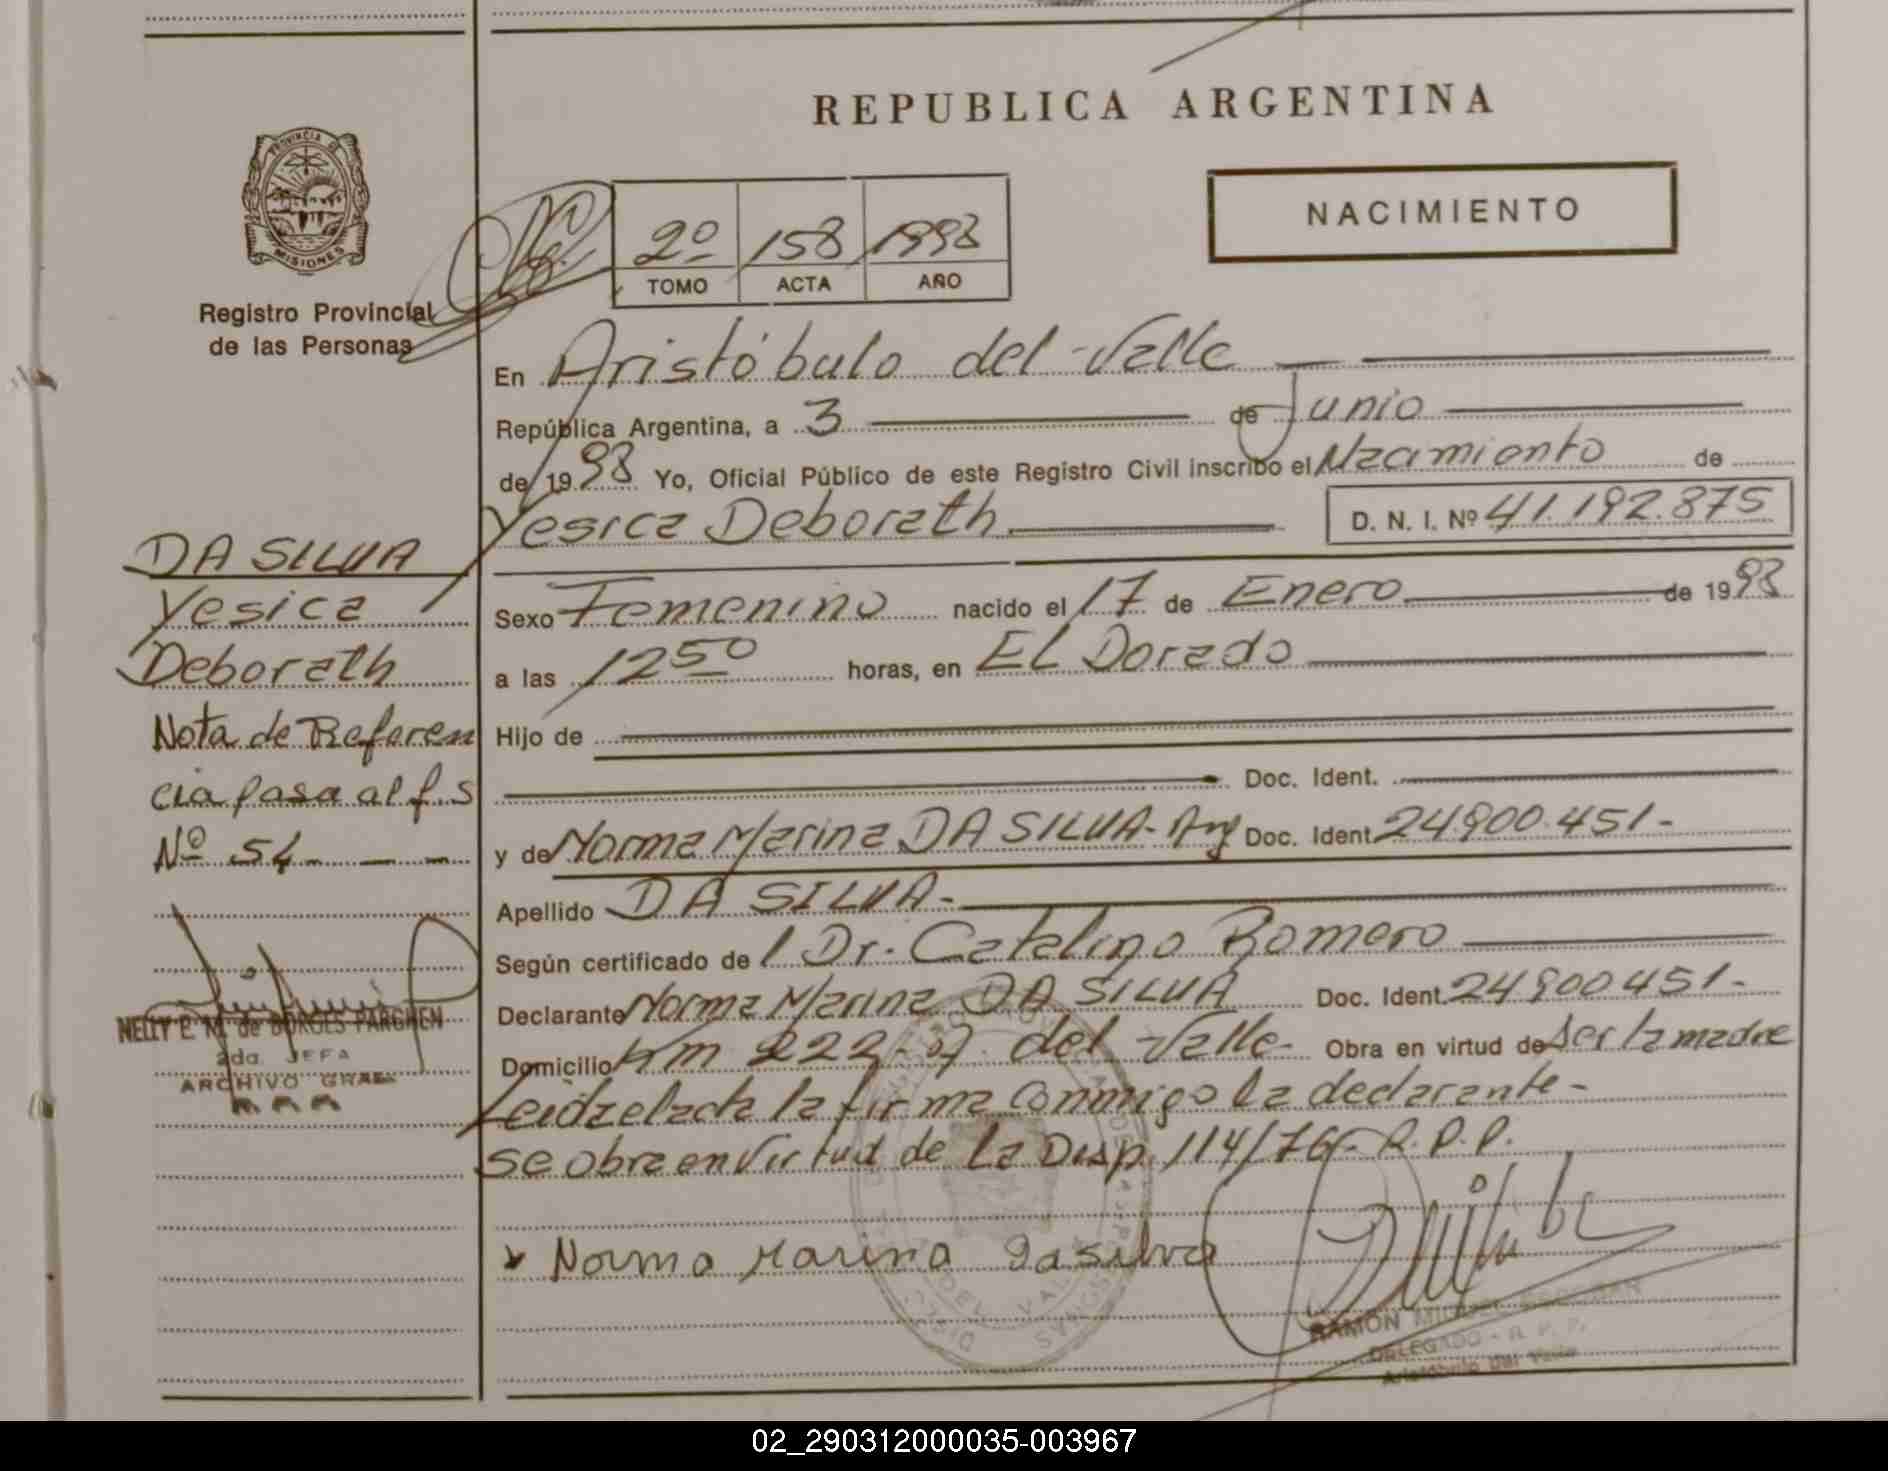 REPUBLICA ARGENTINA
PROVINCIA DE
MISIONES
Registro Provincial
de las Personas
2º 158 1998
TOMO ACTA AÑO
NACIMIENTO
En Aristóbulo del Valle
República Argentina, a 3 de Junio
de 1998 Yo, Oficial Público de este Registro Civil inscribo el Nacimiento de
Yesica Deborath D. N. I. Nº 41.192.875
DA SILVA
Yesica
Deborath
Nota de Referen
cia pasa al f.s
Nº 54
NELLY E. M. de BORGES PARGHEN
2da. JEFA
ARCHIVO GRAL
Sexo Femenino nacido el 17 de Enero de 1998
a las 12 50 horas, en EL Dorado
Hijo de
Doc. Ident.
y de Norma Marina DA SILVA - Arg Doc. Ident. 24.900.451-
Apellido DA SILVA-
Según certificado del Dr. Catalino Romero
Declarante Norma Marina DA SILVA Doc. Ident. 24900451-
Domicilio Km 222 - del Valle- Obra en virtud de ser la madre
Leida el acta la firma conmigo la declarante-
se obra en virtud de la Disp. 114/76- R.P.P.
Norma Marina Dasilva
DEL VALLE
RAMON MIGUEL
DELEGADO - R. P. P.
Aristóbulo del Valle
02_290312000035-003967